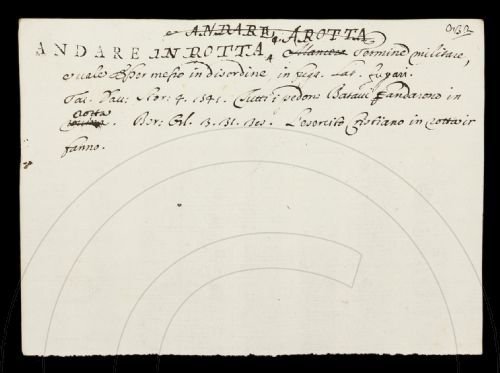 ANDARE, A ROTTA
ANDARE IN ROTTA, Termine militare,
e vale Esser messo in disordine, in fuga. Lat. fugari.
Tac. Dav. Stor. 4. 341. Tutti i pedoni Batavi andarono in
rotta. Ber. Orl. 3. 31. L'esercito Cristiano in rotta ir
fanno.